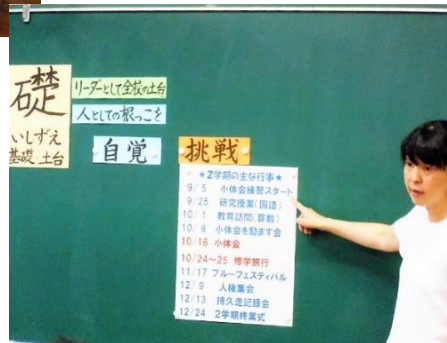 礎
いしずえ
基礎 土台
リーダーとして全校の土台
人としての根っこを
自覚
挑戦
★2学期の主な行事★
9/5 小体会練習スタート
9/25 研究授業(国語)
10/1 教育訪問(算数)
10/8 小体会を励ます会
10/16 小体会
10/24～25 修学旅行
11/17 フルーフェスティバル
12/9 人権集会
12/13 持久走記録会
12/24 2学期終業式